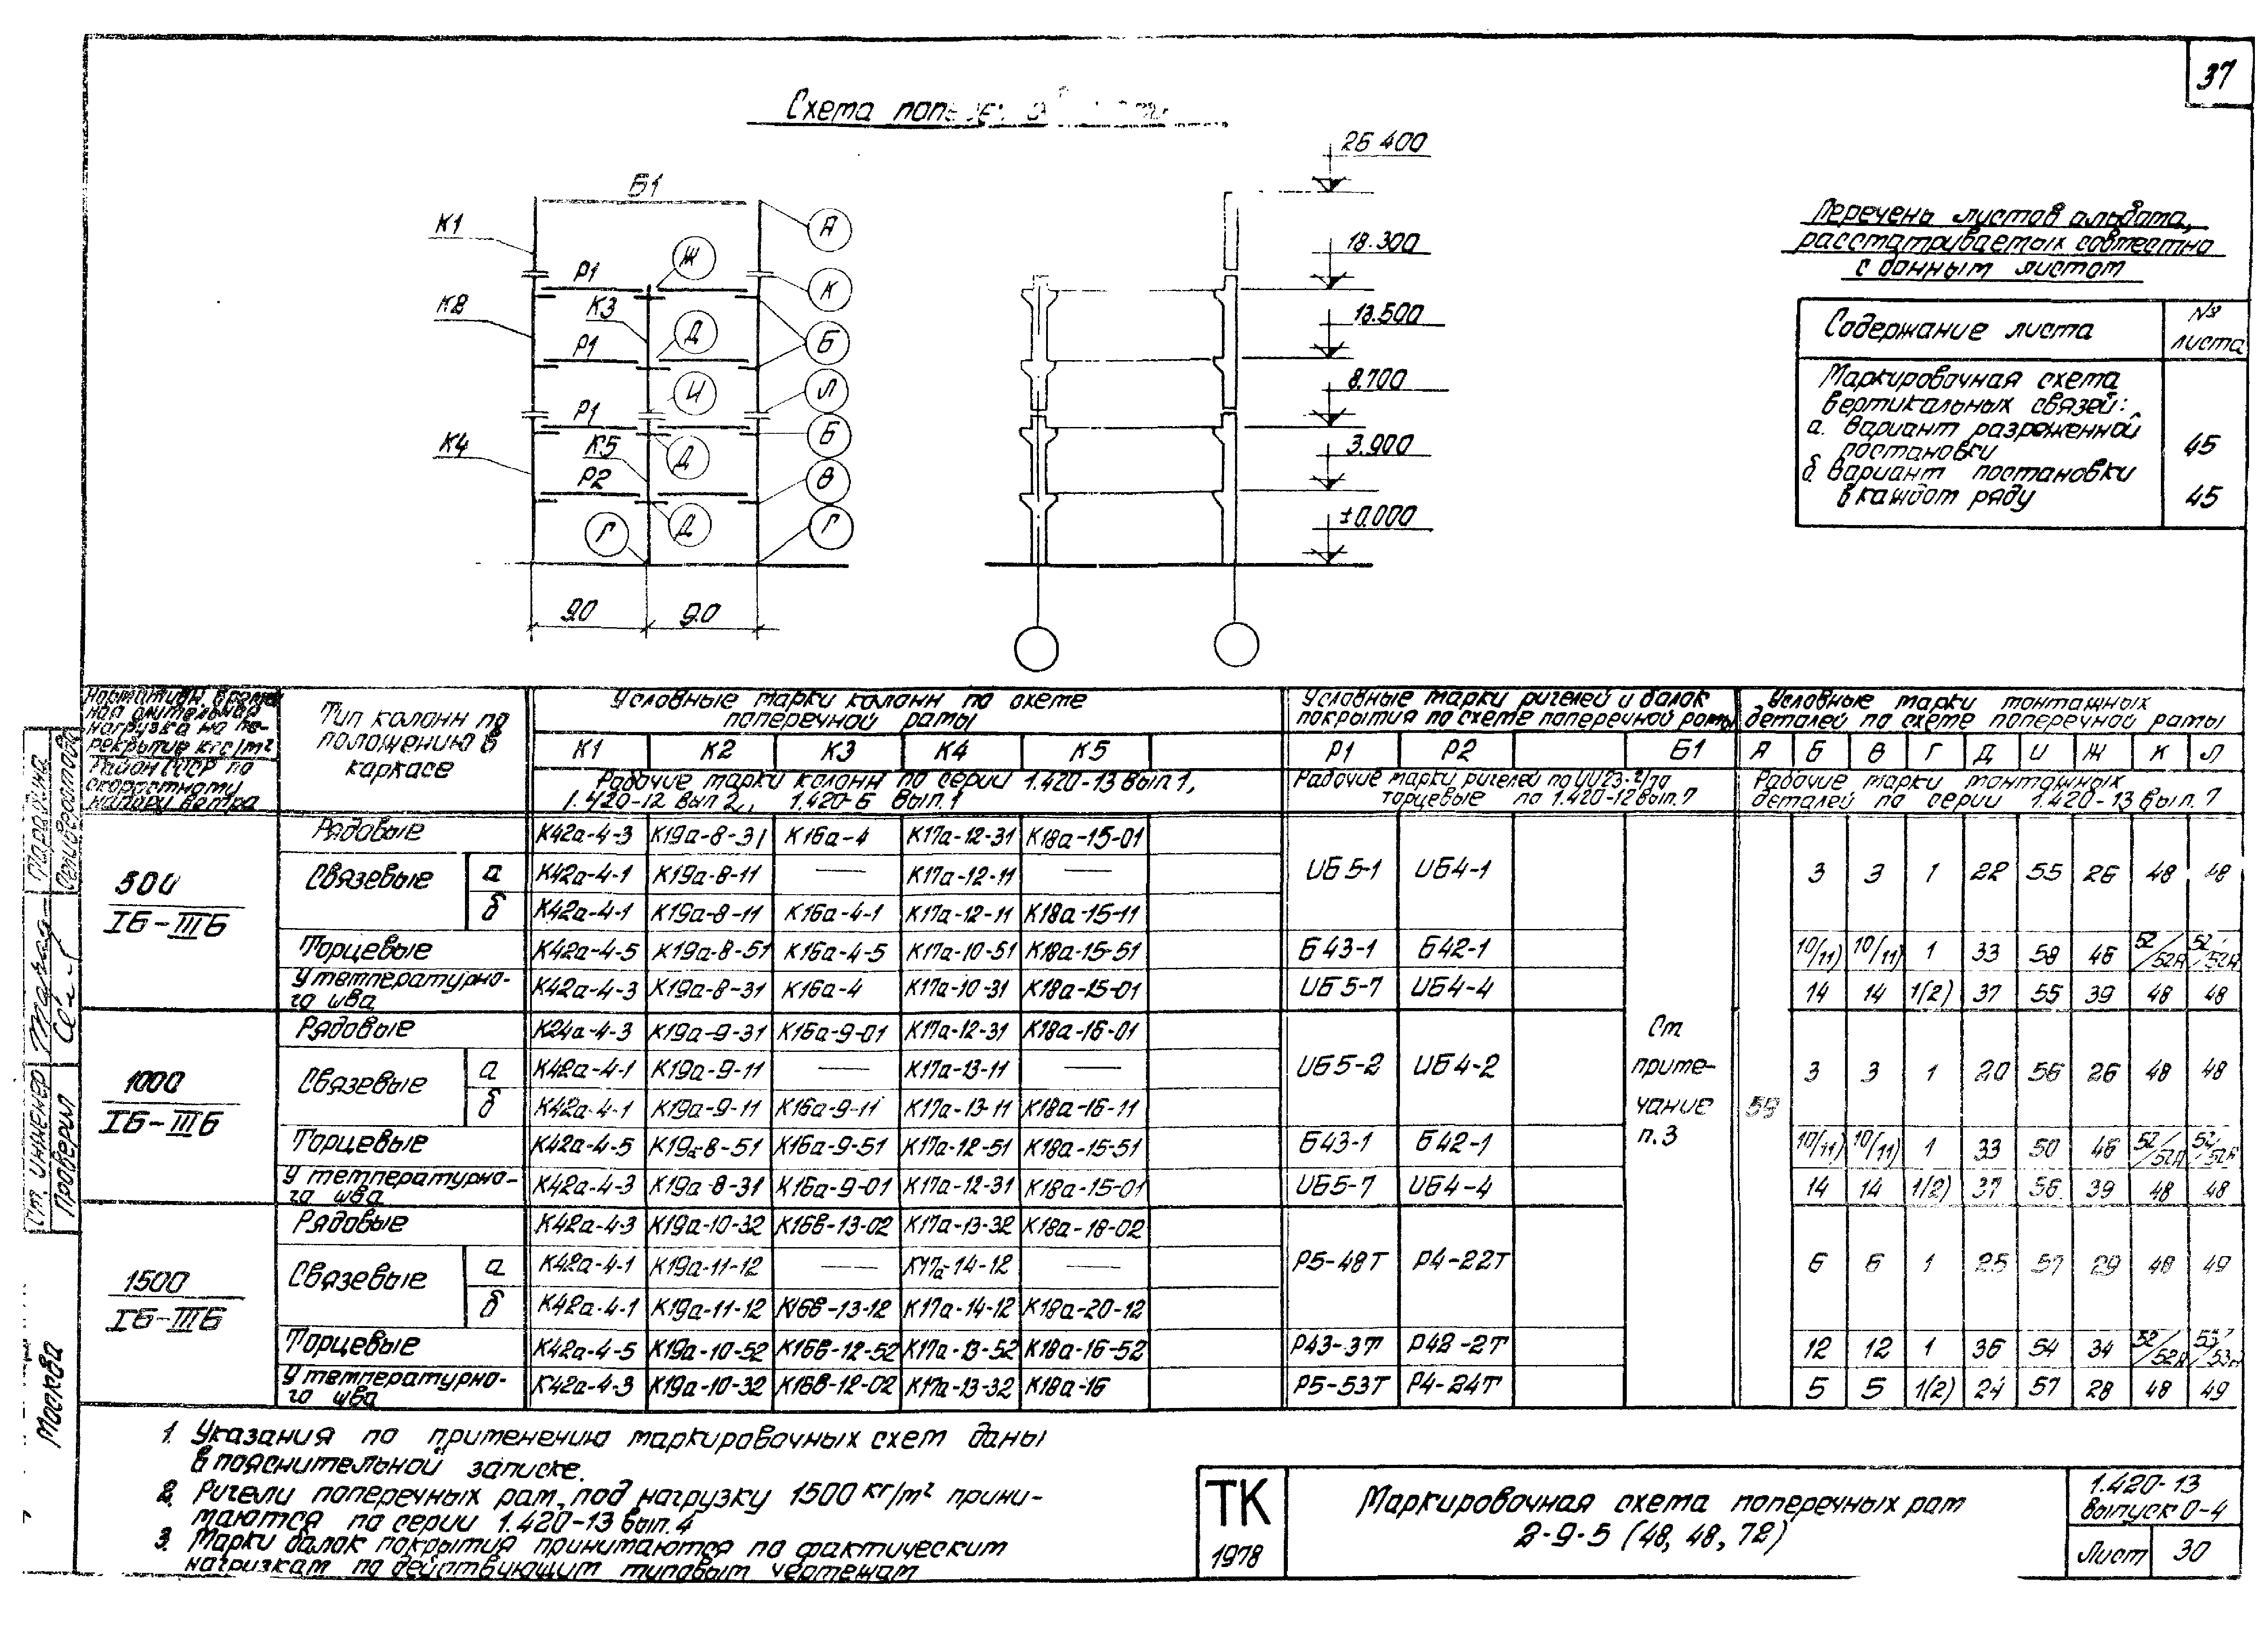 37
Схема
26 400
Б1
К1
А
18.300
Ж
Р1
К
К2
К3
13.500
Д
Б
Р1
8.700
И
Л
Р1
Б
К4
К5
3.900
Д
Р2
В
Д
Г
Г
±0.000
9.0 9.0
Перечень листов альбома,
рассматриваемых совместно
с данным листом
Содержание листа
№№
листа
Маркировочная схема
вертикальных связей:
а. Вариант разреженной
постановки 45
б. Вариант постановки
в каждом ряду 45
Нормативн. времен-
ная длительная
нагрузка на пе-
рекрытие кгс/м²
Район СССР по
скоростному
напору ветра
Тип колонн по
положению в
каркасе
Условные марки колонн по схеме
поперечной рамы
К1 К2 К3 К4 К5
Рабочие марки колонн по серии 1.420-13 вып.1,
1.420-12 вып 2., 1.420-6 вып.1
Условные марки ригелей и балок
покрытия по схеме поперечной рамы
Р1 Р2 Б1
Рабочие марки ригелей по ИИ23-2/70
торцевые по 1.420-12 вып.7
Условные марки монтажных
деталей по схеме поперечной рамы
А Б В Г Д И Ж К Л
Рабочие марки монтажных
деталей по серии 1.420-13 вып.7
500
IБ-IIIБ
Рядовые К42а-4-3 К19а-8-31 К16а-4 К17а-12-31 К18а-15-01
Связевые а К42а-4-1 К19а-8-11 — К17а-12-11 —
б К42а-4-1 К19а-8-11 К16а-4-1 К17а-12-11 К18а-15-11
ИБ5-1 ИБ4-1 3 3 1 22 55 26 48 48
Торцевые К42а-4-5 К19а-8-51 К16а-4-5 К17а-10-51 К18а-15-51 Б43-1 Б42-1 10/11) 10/11) 1 33 58 46 52/52А 52/52А
У температурно-
го шва К42а-4-3 К19а-8-31 К16а-4 К17а-10-31 К18а-15-01 ИБ5-7 ИБ4-4 14 14 1(2) 37 55 39 48 48
1000
IБ-IIIБ
Рядовые К24а-4-3 К19а-9-31 К16а-9-01 К17а-12-31 К18а-16-01
Связевые а К42а-4-1 К19а-9-11 — К17а-13-11 —
б К42а-4-1 К19а-9-11 К16а-9-11 К17а-13-11 К18а-16-11
ИБ5-2 ИБ4-2 3 3 1 20 56 26 48 48
Ст
приме-
чание
п.3
59
Торцевые К42а-4-5 К19а-8-51 К16а-9-51 К17а-12-51 К18а-15-51 Б43-1 Б42-1 10/11) 10/11) 1 33 50 46 52/52А 52/52А
У температурно-
го шва К42а-4-3 К19а-8-31 К16а-9-01 К17а-12-31 К18а-15-01 ИБ5-7 ИБ4-4 14 14 1(2) 37 56 39 48 48
1500
IБ-IIIБ
Рядовые К42а-4-3 К19а-10-32 К16в-13-02 К17а-13-32 К18а-18-02
Связевые а К42а-4-1 К19а-11-12 — К17а-14-12 —
б К42а-4-1 К19а-11-12 К16в-13-12 К17а-14-12 К18а-20-12
Р5-48Т Р4-22Т 6 6 1 25 57 29 48 49
Торцевые К42а-4-5 К19а-10-52 К16в-12-52 К17а-13-52 К18а-16-52 Р43-3Т Р42-2Т 12 12 1 36 54 34 52/52А 53/53А
У температурно-
го шва К42а-4-3 К19а-10-32 К16в-12-02 К17а-13-32 К18а-16 Р5-53Т Р4-24Т 5 5 1(2) 24 57 28 48 49
1. Указания по применению маркировочных схем даны
в пояснительной записке.
2. Ригели поперечных рам под нагрузку 1500 кг/м² прини-
маются по серии 1.420-13 вып.4
3. Марки балок покрытия принимаются по фактическим
нагрузкам по действующим типовым чертежам
ТК
1978
Маркировочная схема поперечных рам
2-9-5 (48, 48, 72)
1.420-13
выпуск 0-4
Лист 30
Ст. инженер
Проверил
Москва